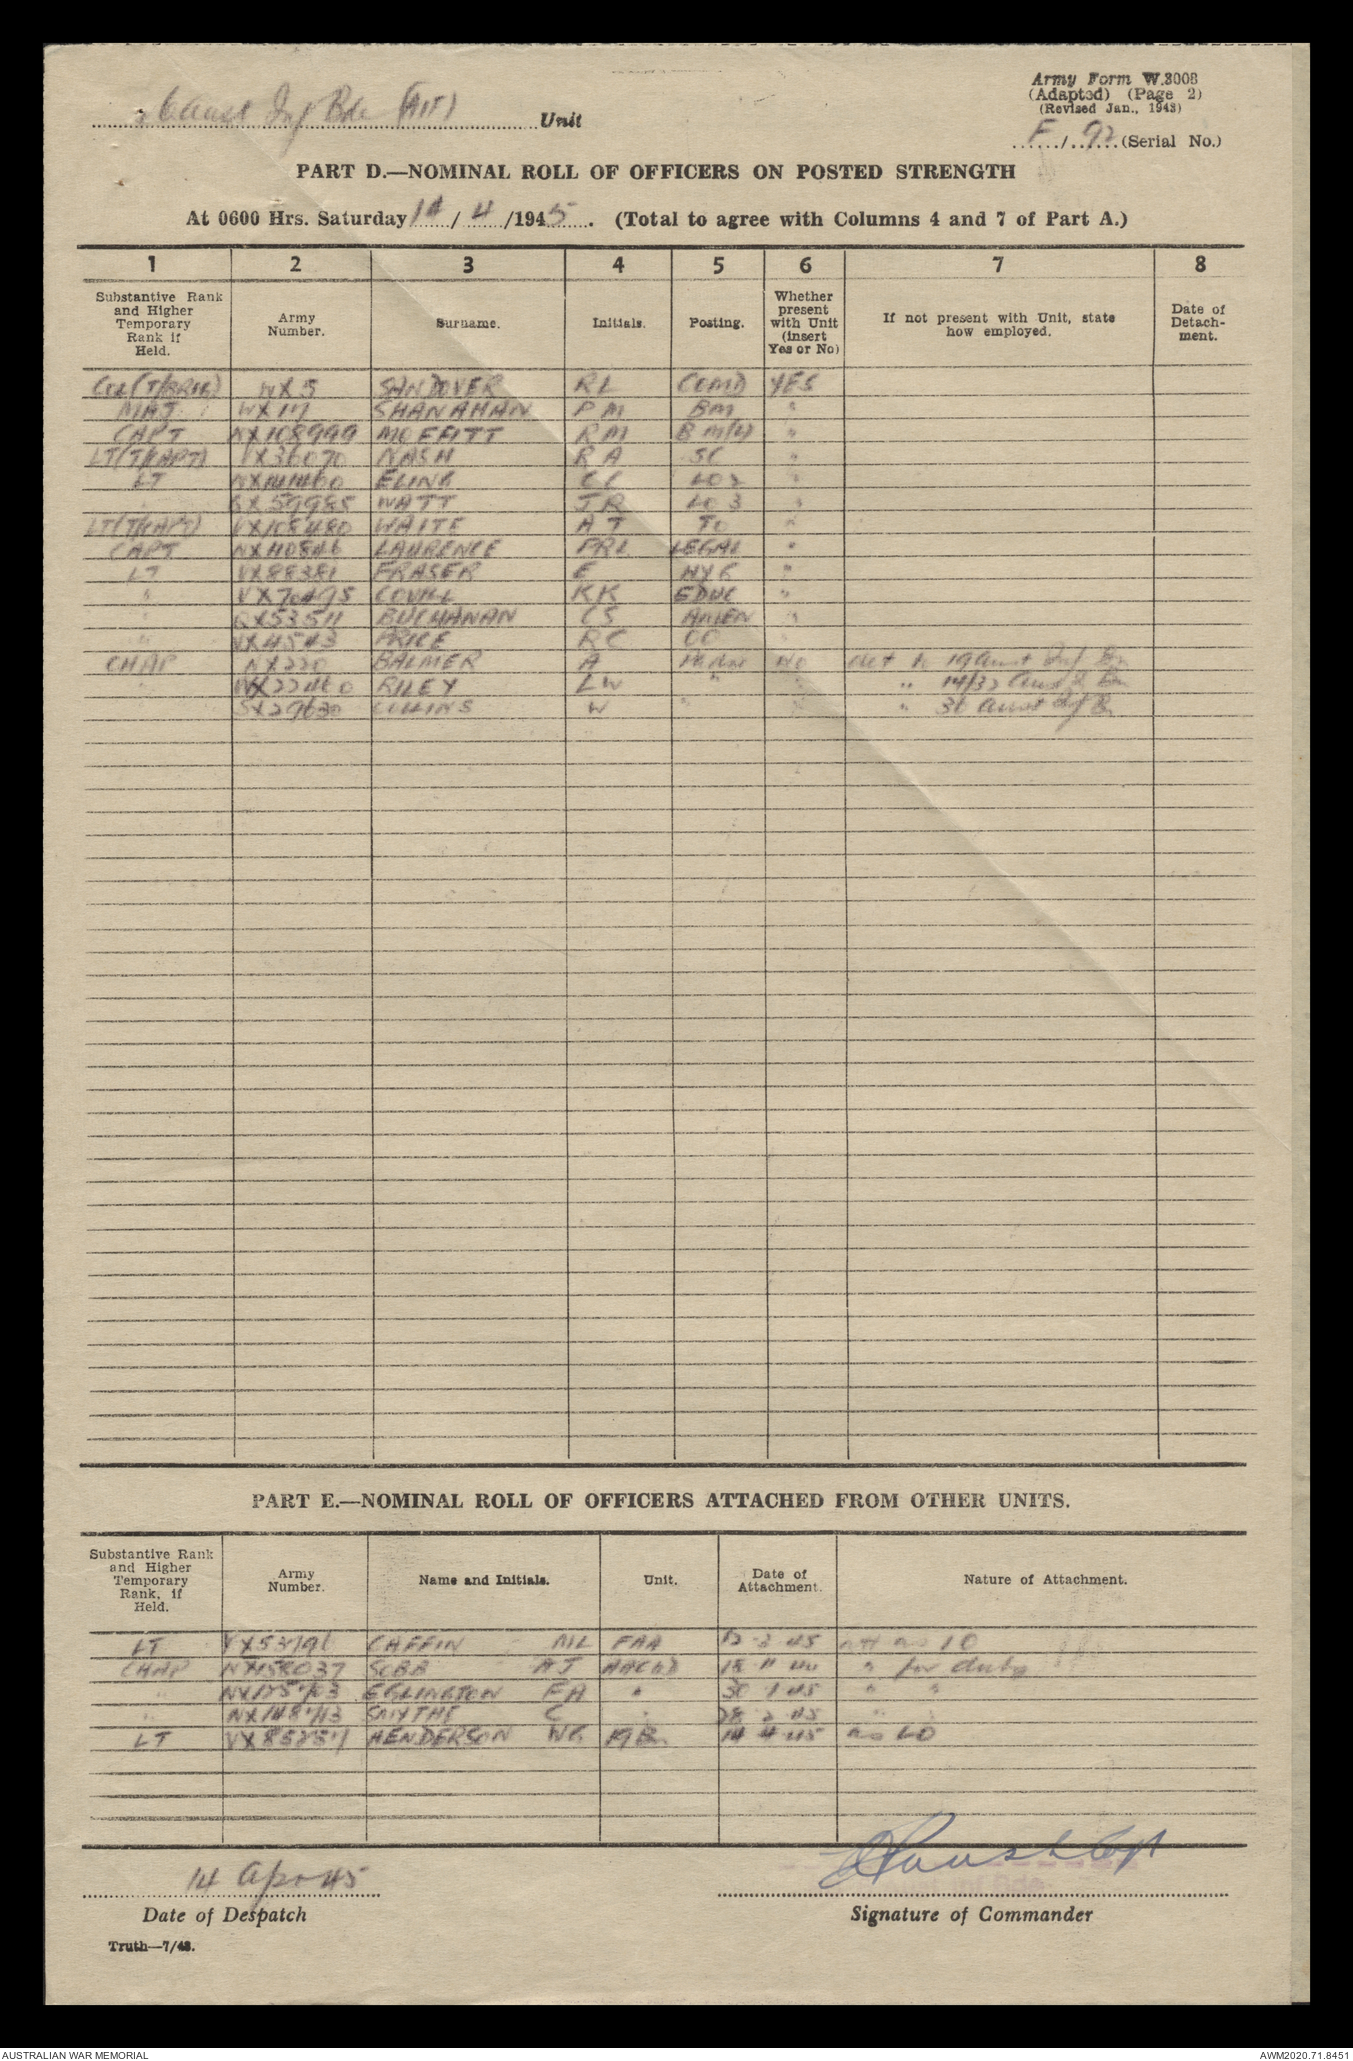 Army Form W.3008
(Adapted) (Page 2)
(Revised Jan., 1943)
6 Aust Inf Bde (AIF) Unit
F / 92 (Serial No.)
PART D.—NOMINAL ROLL OF OFFICERS ON POSTED STRENGTH
At 0600 Hrs. Saturday 14 / 4 /1945. (Total to agree with Columns 4 and 7 of Part A.)
1 2 3 4 5 6 7 8
Substantive Rank and Higher Temporary Rank if Held. Army Number. Surname. Initials. Posting. Whether present with Unit (insert Yes or No) If not present with Unit, state how employed. Date of Detach- ment.
COL (T/BRIG) WX5 SANDOVER RL COMD YES
MAJ SHANAHAN PM BM "
CAPT NX108999 MOFFITT RM "
LT(T/CAPT) VX36070 NASH RA SC "
LT ELING CC LO2 "
QX59985 WATT JR LO3 "
LT(T/CAPT) VX108480 WAITE AT TO "
CAPT NX110846 LAURENCE FRL LEGAL "
LT VX88381 FRASER E HYG "
" VX70495 COVILL KK EDUC "
" QX53511 BUCHANAN CS AMEN "
" VX4543 PRICE RC OC "
CHAP NX220 BALMER A Padre NO att to 19 Aust Inf Bn
" RILEY LW " " " 14/32 Aust I Bn
SX29630 COLLINS W " " 36 Aust Inf Bn
PART E.—NOMINAL ROLL OF OFFICERS ATTACHED FROM OTHER UNITS.
Substantive Rank and Higher Temporary Rank, if Held. Army Number. Name and Initials. Unit. Date of Attachment. Nature of Attachment.
LT CAFFIN ML FAA 12 3 45 att as IO
CHAP NX158037 AJ 18 11 44 " for duty
" EGLINGTON FA " 30 1 45 " "
" SMYTHE C " 28 2 45 " "
LT HENDERSON WG 19 Bn 14 4 45 as LO
14 Apr 45
Date of Despatch Signature of Commander
Truth—7/43.
AUSTRALIAN WAR MEMORIAL AWM2020.71.8451